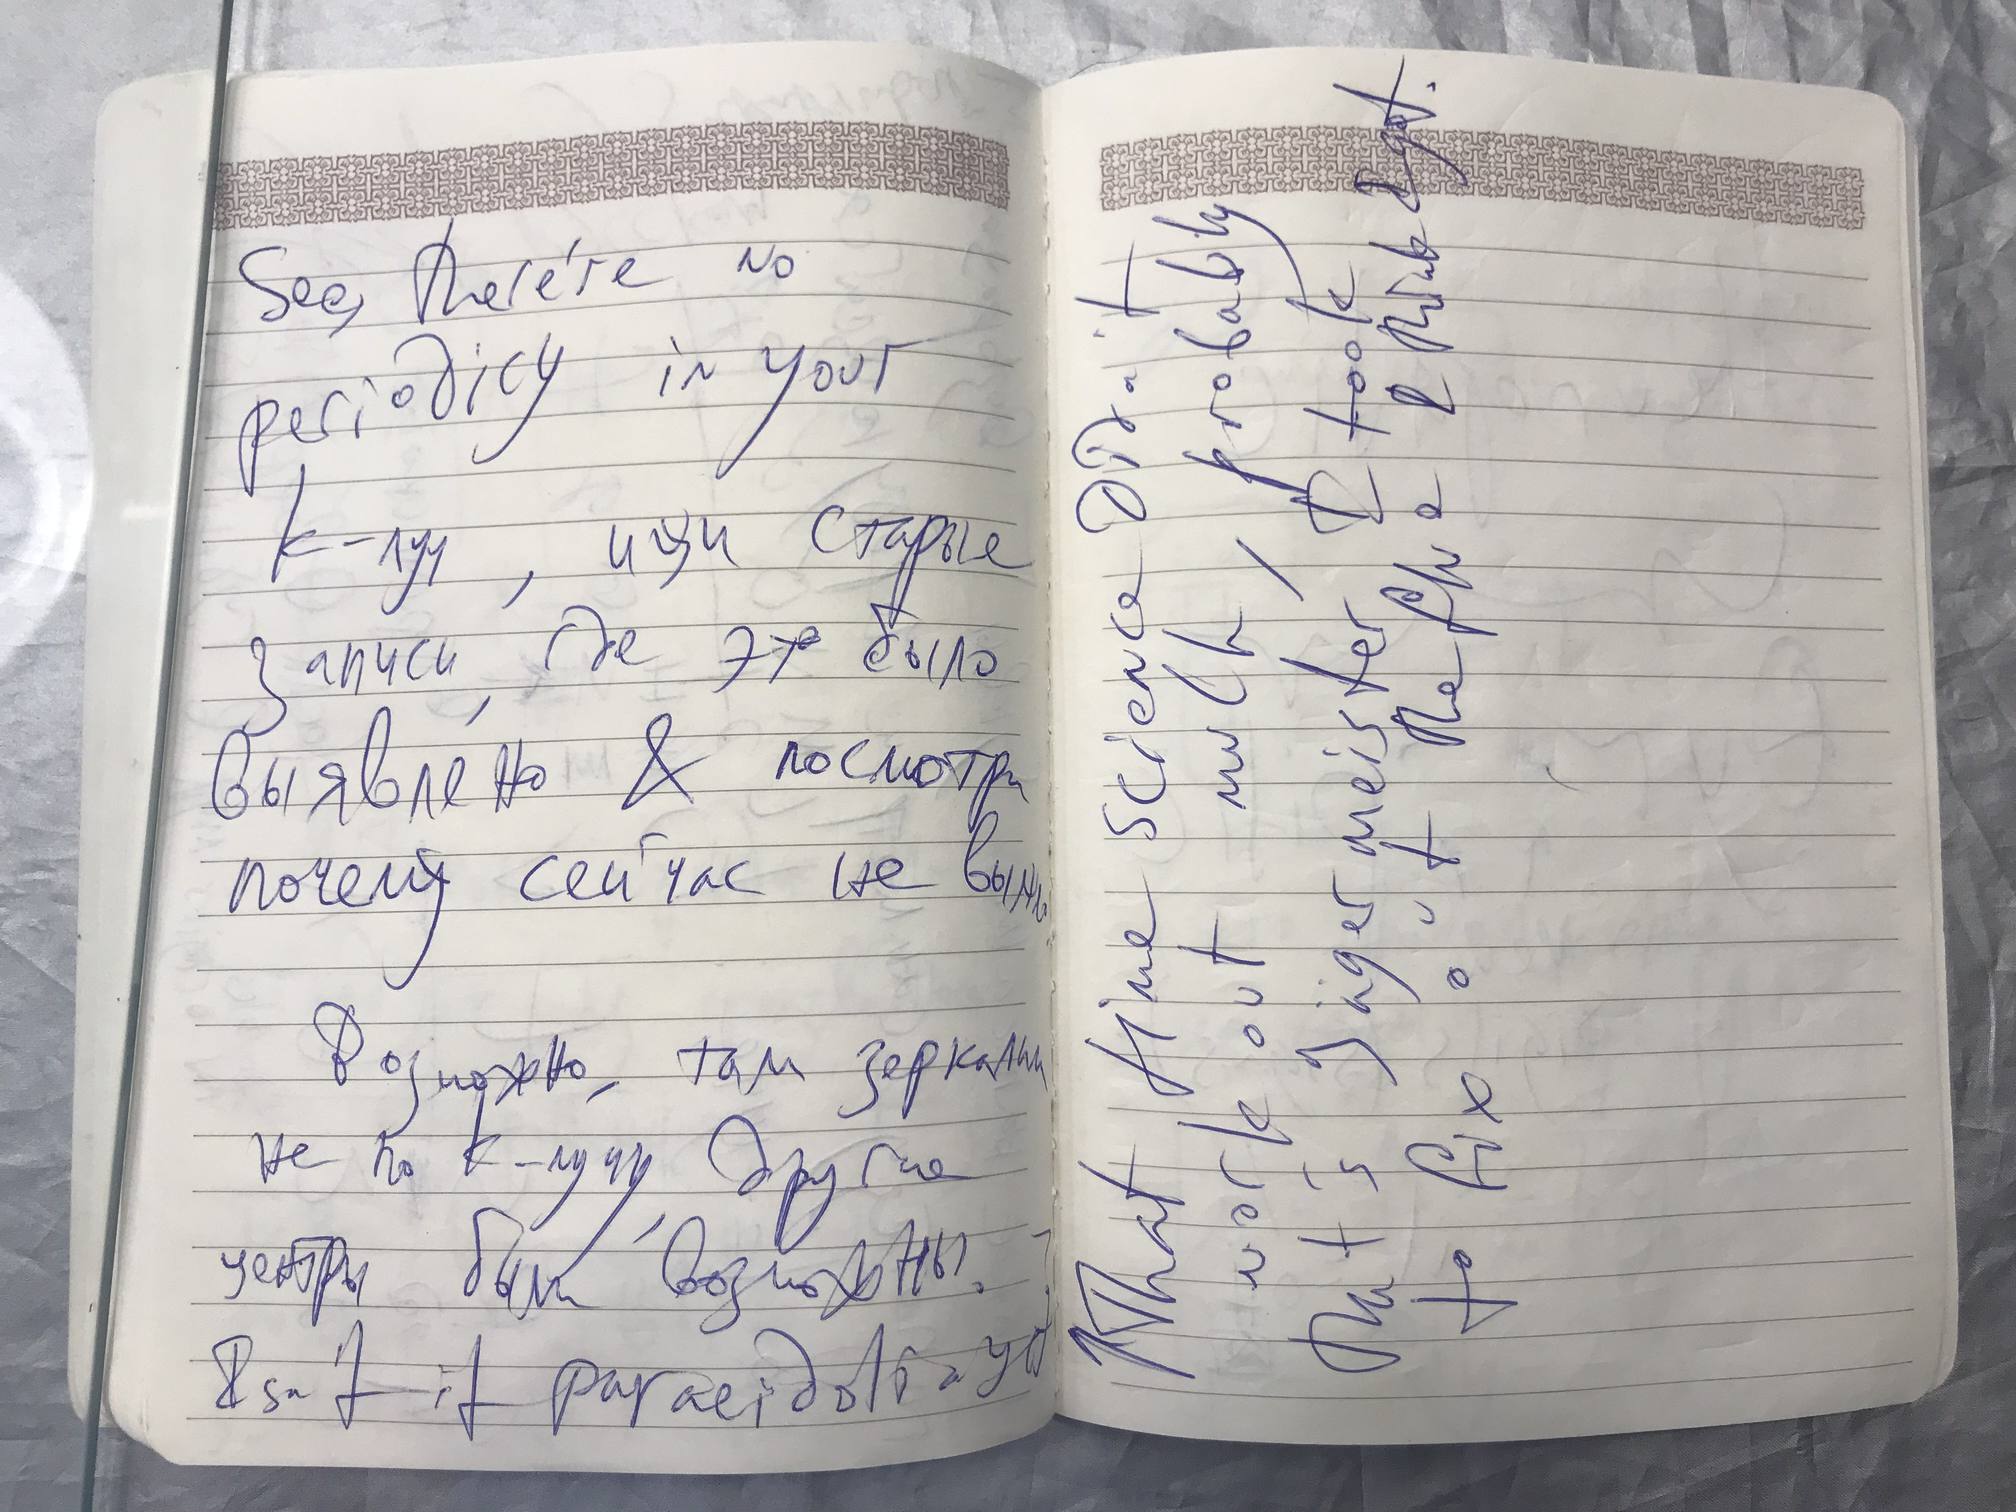 See, there're no
periodicy in your
k-луч, ищи старые
записи, где это было
выявлено & посмотри
почему сейчас не
Возможно, там зеркалим
не по k-лучу, другие
центры были возможны.
Isn't it paraeidolia yet
That time science didn't
work out much, probably
that's Jägermeister I took
to fix the flu I think I got.